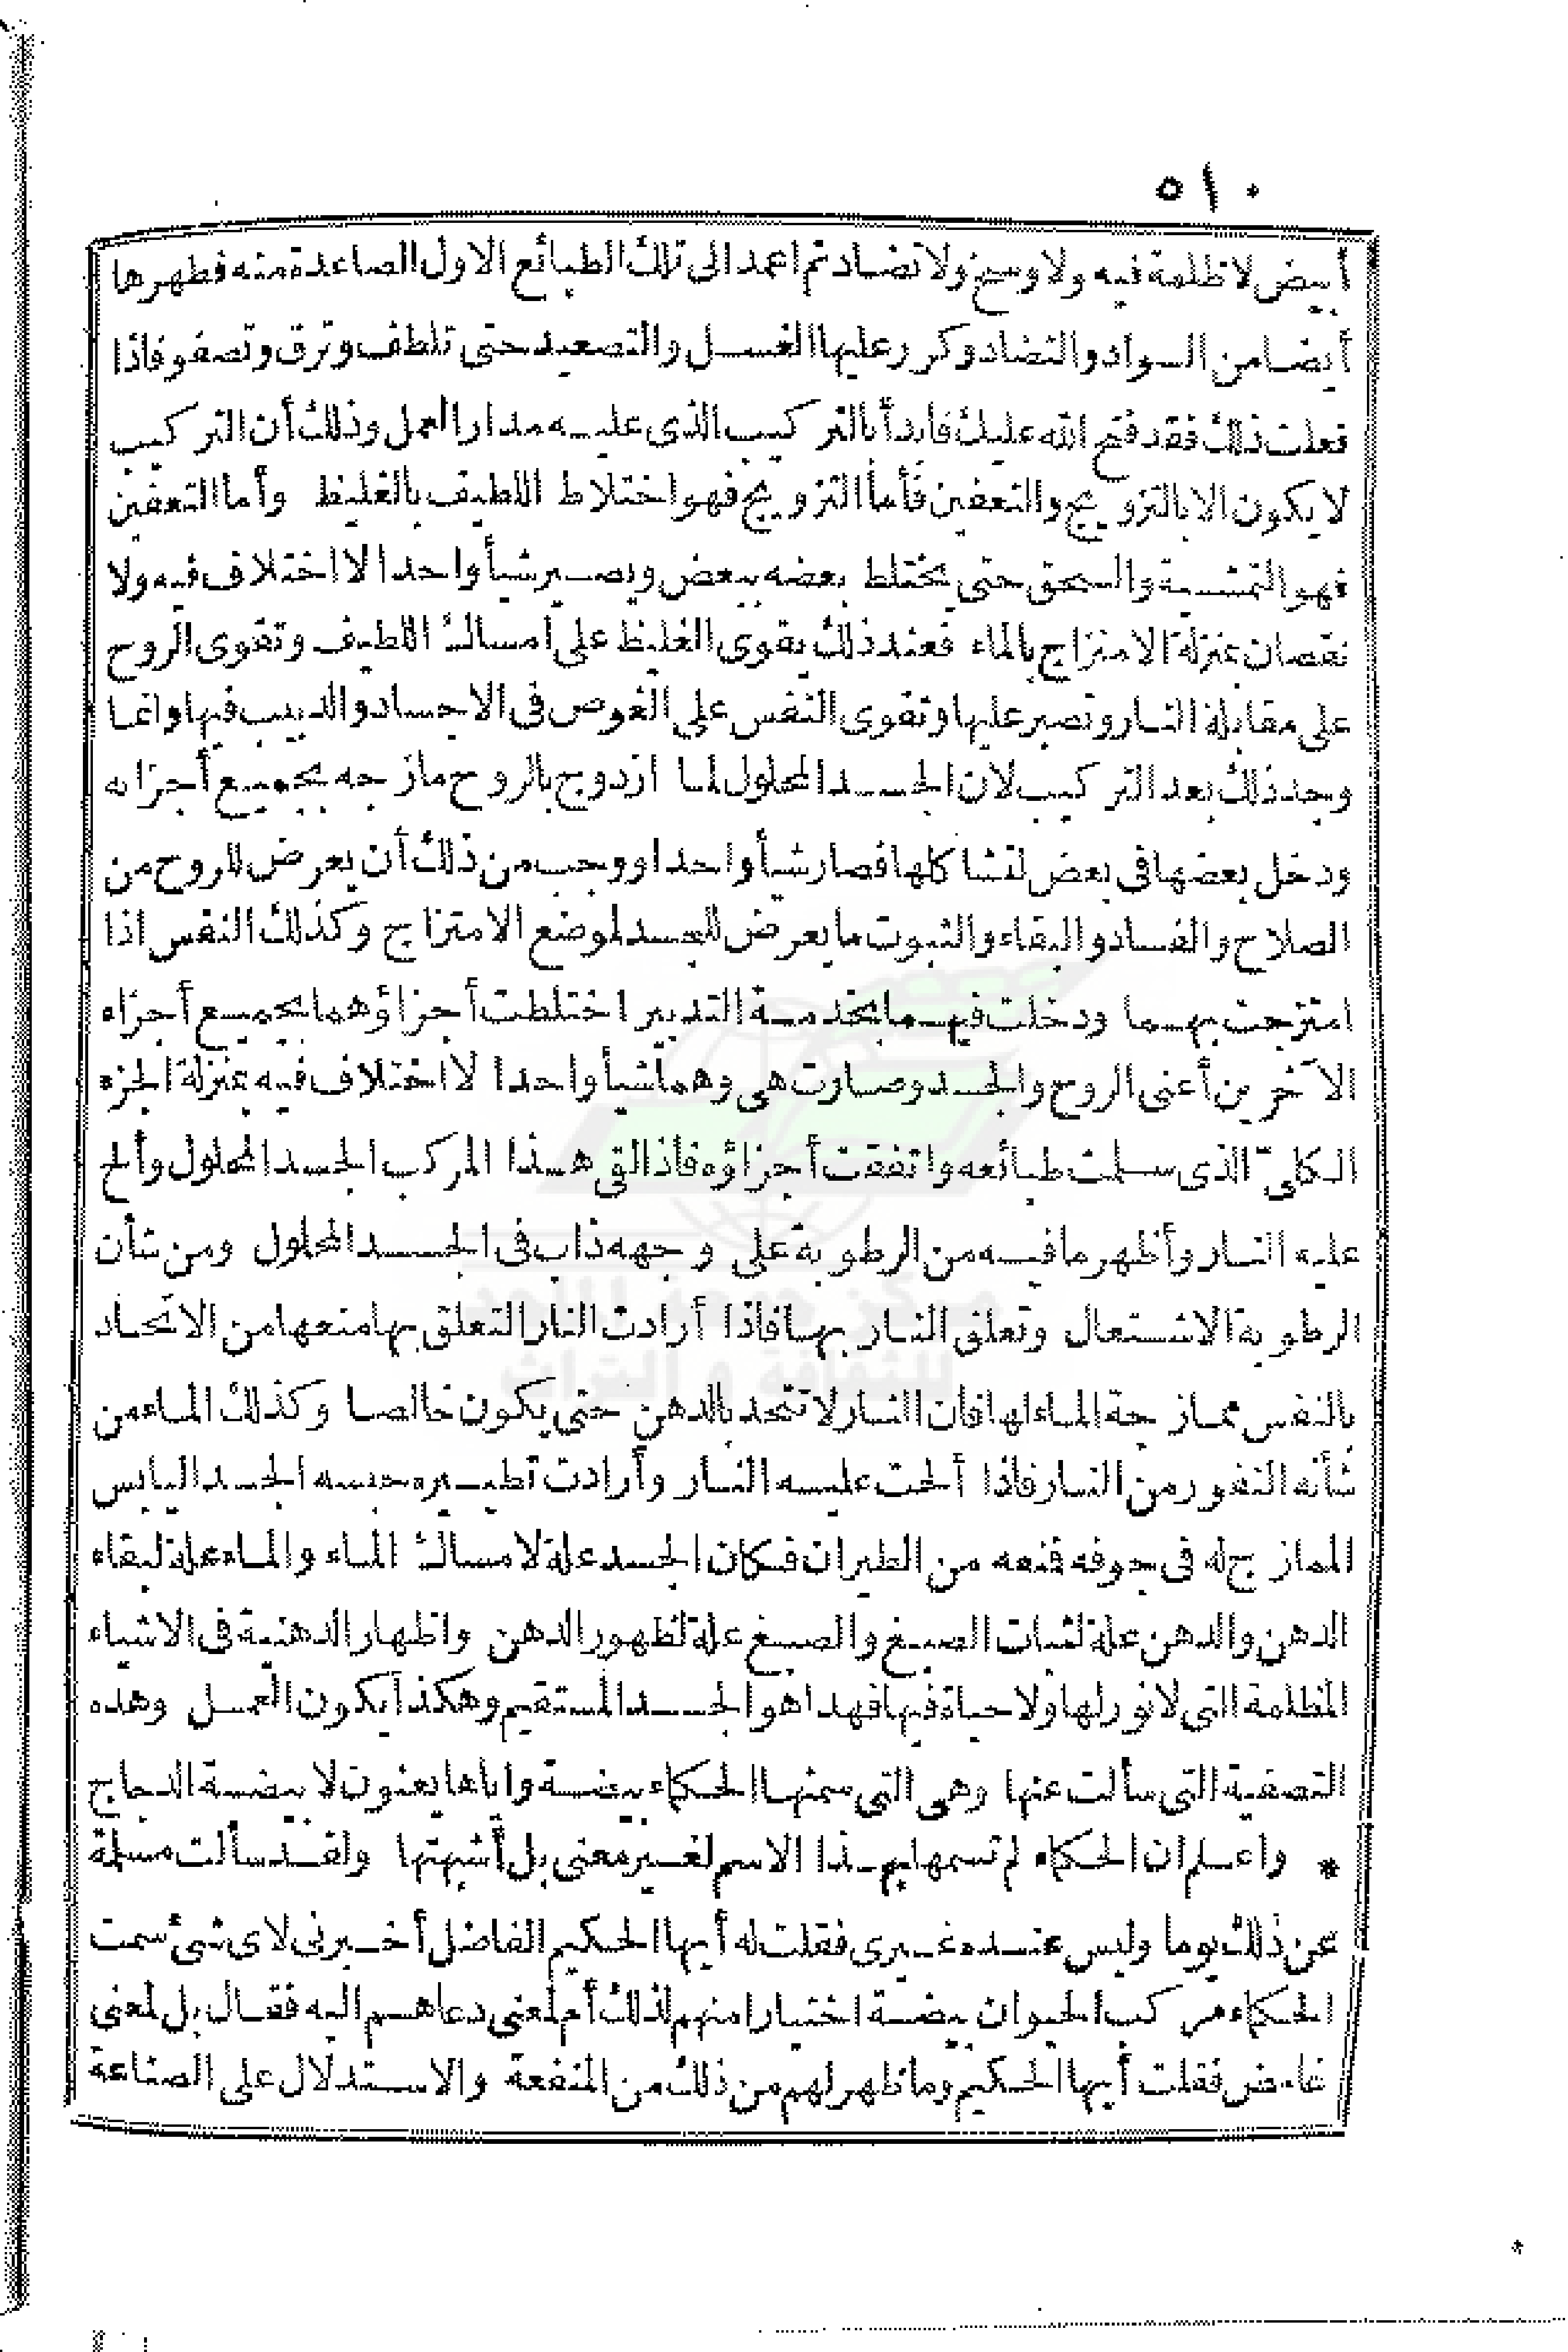 ٥١٠
أبيض لا ظلمة فيه ولا وسخ ولا تضاد ثم اعمد الى تلك الطبائع الاول الصاعدة منه فطهرها
أيضا من السواد والتضاد وكرر عليها الغسل والتصعيد حتى تلطف وترق وتصفو فاذا
فعلت ذلك فقد فتح الله عليك فابدأ بالتركيب الذى عليه مدار العمل وذلك أن التركيب
لا يكون الا بالتزويج والتعفين فأما التزويج فهو اختلاط اللطيف بالغليظ وأما التعفين
فهو التمشية والسحق حتى يختلط بعضه ببعض ويصير شيأ واحدا لا اختلاف فيه ولا
نقصان بمنزلة الامتزاج بالماء فعند ذلك يقوى الغليظ على امساك اللطيف وتقوى الروح
على مقابلة النار وتصبر عليها وتقوى النفس على الغوص فى الاجساد والدبيب فيها وانما
وجد ذلك بعد التركيب لان الجسد المحلول لما ازدوج بالروح مازجه بجميع أجزائه
ودخل بعضها فى بعض لتشاكلها فصار شيأ واحدا ووجب من ذلك أن يعرض للروح من
الصلاح والفساد والبقاء والثبوت ما يعرض للجسد لموضع الامتزاج وكذلك النفس اذا
امتزجت بهما ودخلت فيهما بخدمة التدبير اختلطت أجزاؤهما بجميع أجزاء
الآخرين أعنى الروح والجسد وصارت هى وهما شيأ واحدا لا اختلاف فيه بمنزلة الجزء
الكلىّ الذى سلمت طبائعه واتفقت أجزاؤه فاذا القى هذا المركب الجسد المحلول وألح
عليه النار وأظهر ما فيه من الرطوبة على وجهه ذاب فى الجسد المحلول ومن شأن
الرطوبة الاشتعال وتعلق النار بها فاذا أرادت النار التعلق بها منعها من الاتحاد
بالنفس ممازجة الماء لها فان النار لا تتحد بالدهن حتى يكون خالصا وكذلك الماء من
شأنه النفور من النار فاذا ألحت عليه النار وأرادت تطييره حبسه الجسد اليابس
الممازج له فى جوفه فمنعه من الطيران فكان الجسد علة لامساك الماء والماء علة لبقاء
الدهن والدهن علة لثبات الصبغ والصبغ علة لظهور الدهن واظهار الدهنية فى الاشياء
المظلمة التى لا نور لها ولا حياة فيها فهذا هو الجسد المستقيم وهكذا يكون العمل وهذه
التصفية التى سألت عنها وهى التى سمتها الحكاء بيضة واياها يعنون لا بيضة الدجاج
* واعلم ان الحكاء لم تسمها بهذا الاسم لغير معنى بل أشبهتها ولقد سألت مسلمة
عن ذلك يوما وليس عنده غيرى فقلت له أيها الحكيم الفاضل أخبرنى لاى شئ سمت
الحكاء مركب الحيوان بيضة اختيارا منهم لذلك أم لمعنى دعاهم اليه فقال بل لمعنى
غامض فقلت أيها الحكيم وما ظهر لهم من ذلك من المنفعة والاستدلال على الصناعة
مركز جمعة الماجد
للثقافة و التراث